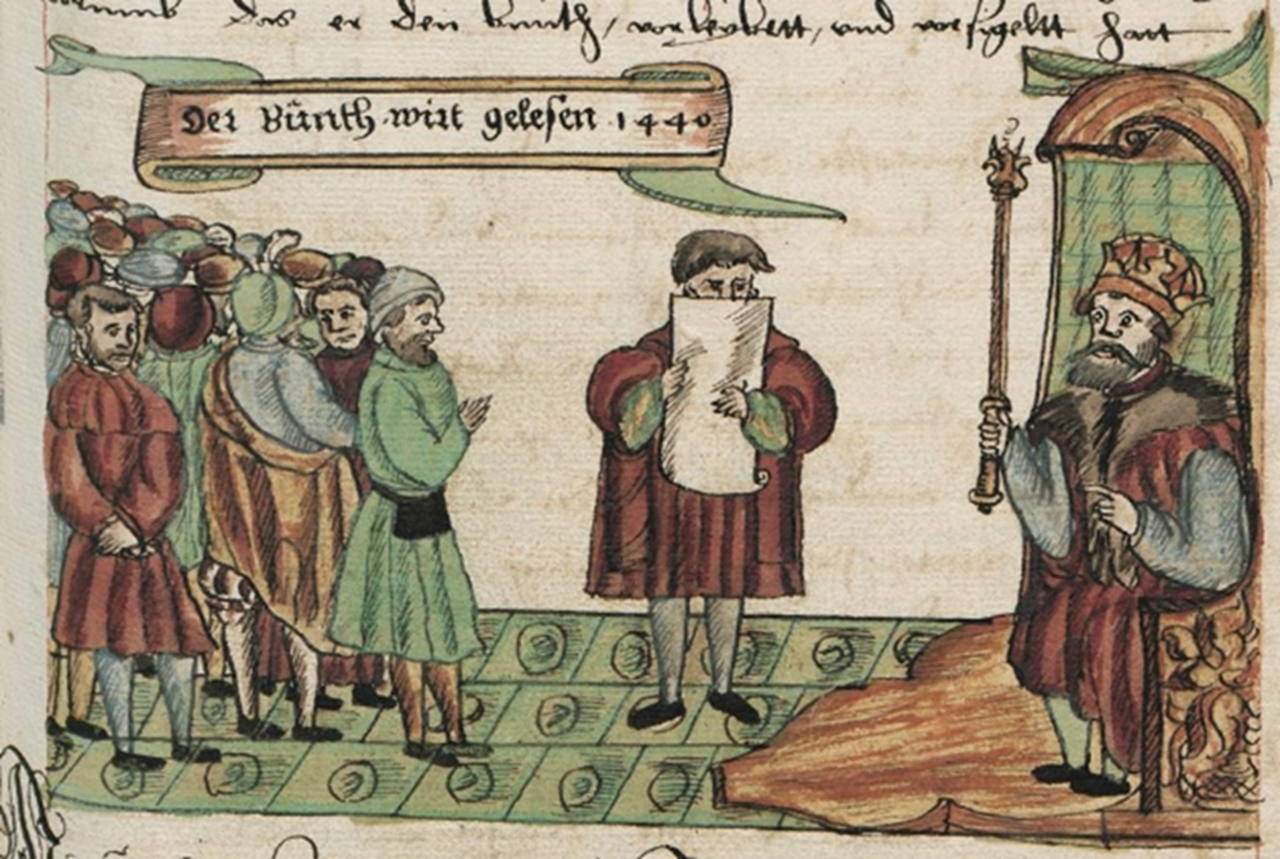 das er den bunth, vorleybett, und vorsigeltt hatt
Der Bünth wirt gelesen 1440